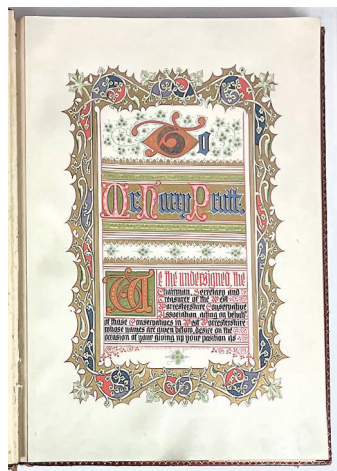 To
Mr. Harry Pratt,
We the undersigned, the
Chairman, Secretary and
Treasurer of the West
Worcestershire Conservative
Association acting on behalf
of those Conservatives in West Worcestershire
whose names are given below, desire on the
occasion of your giving up your position as